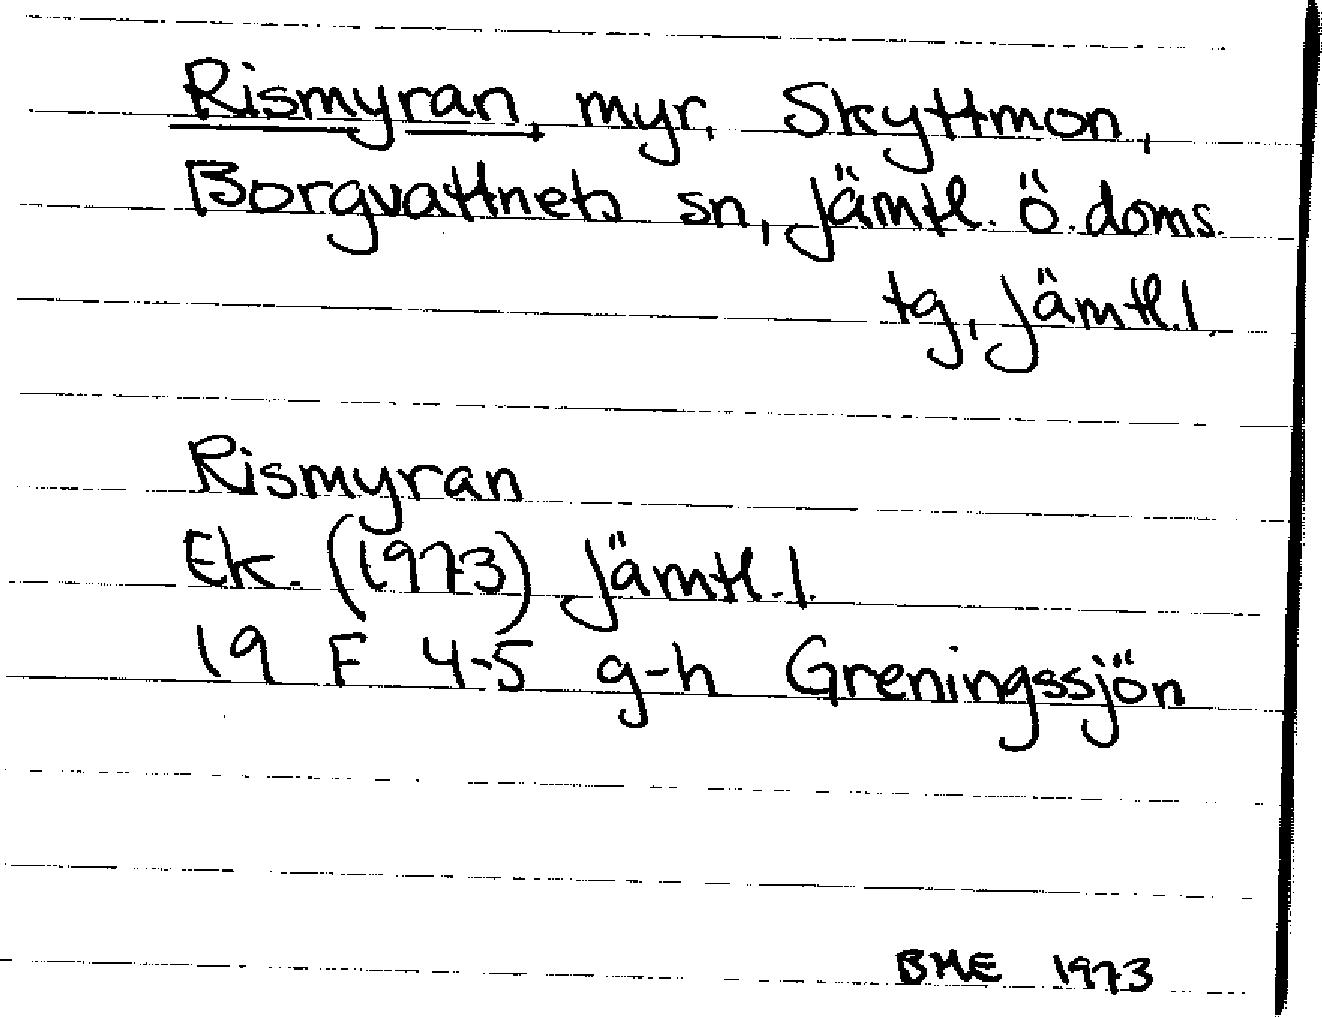 Rismyran, myr, Skyttmon,
Borgvattnets sn, Jämtl. ö. doms.
tg, Jämtl. l.
Rismyran
Ek. (1973) Jämtl. l.
19 F 4-5 g-h Greningssjön
BME 1973